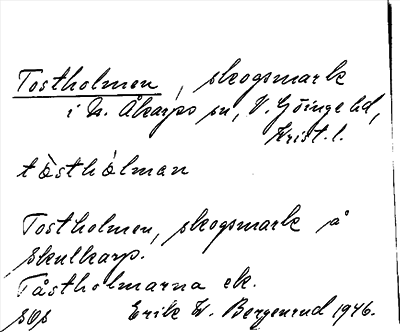 Tostholmen, skogsmark
i N. Åkarps sn, V. Göinge hd,
Krist. l.
tòsthòlman
Tostholmen, skogsmark å
Skulkarp.
Tåstholmarna ek.
Erik W. Bergenrud 1946.